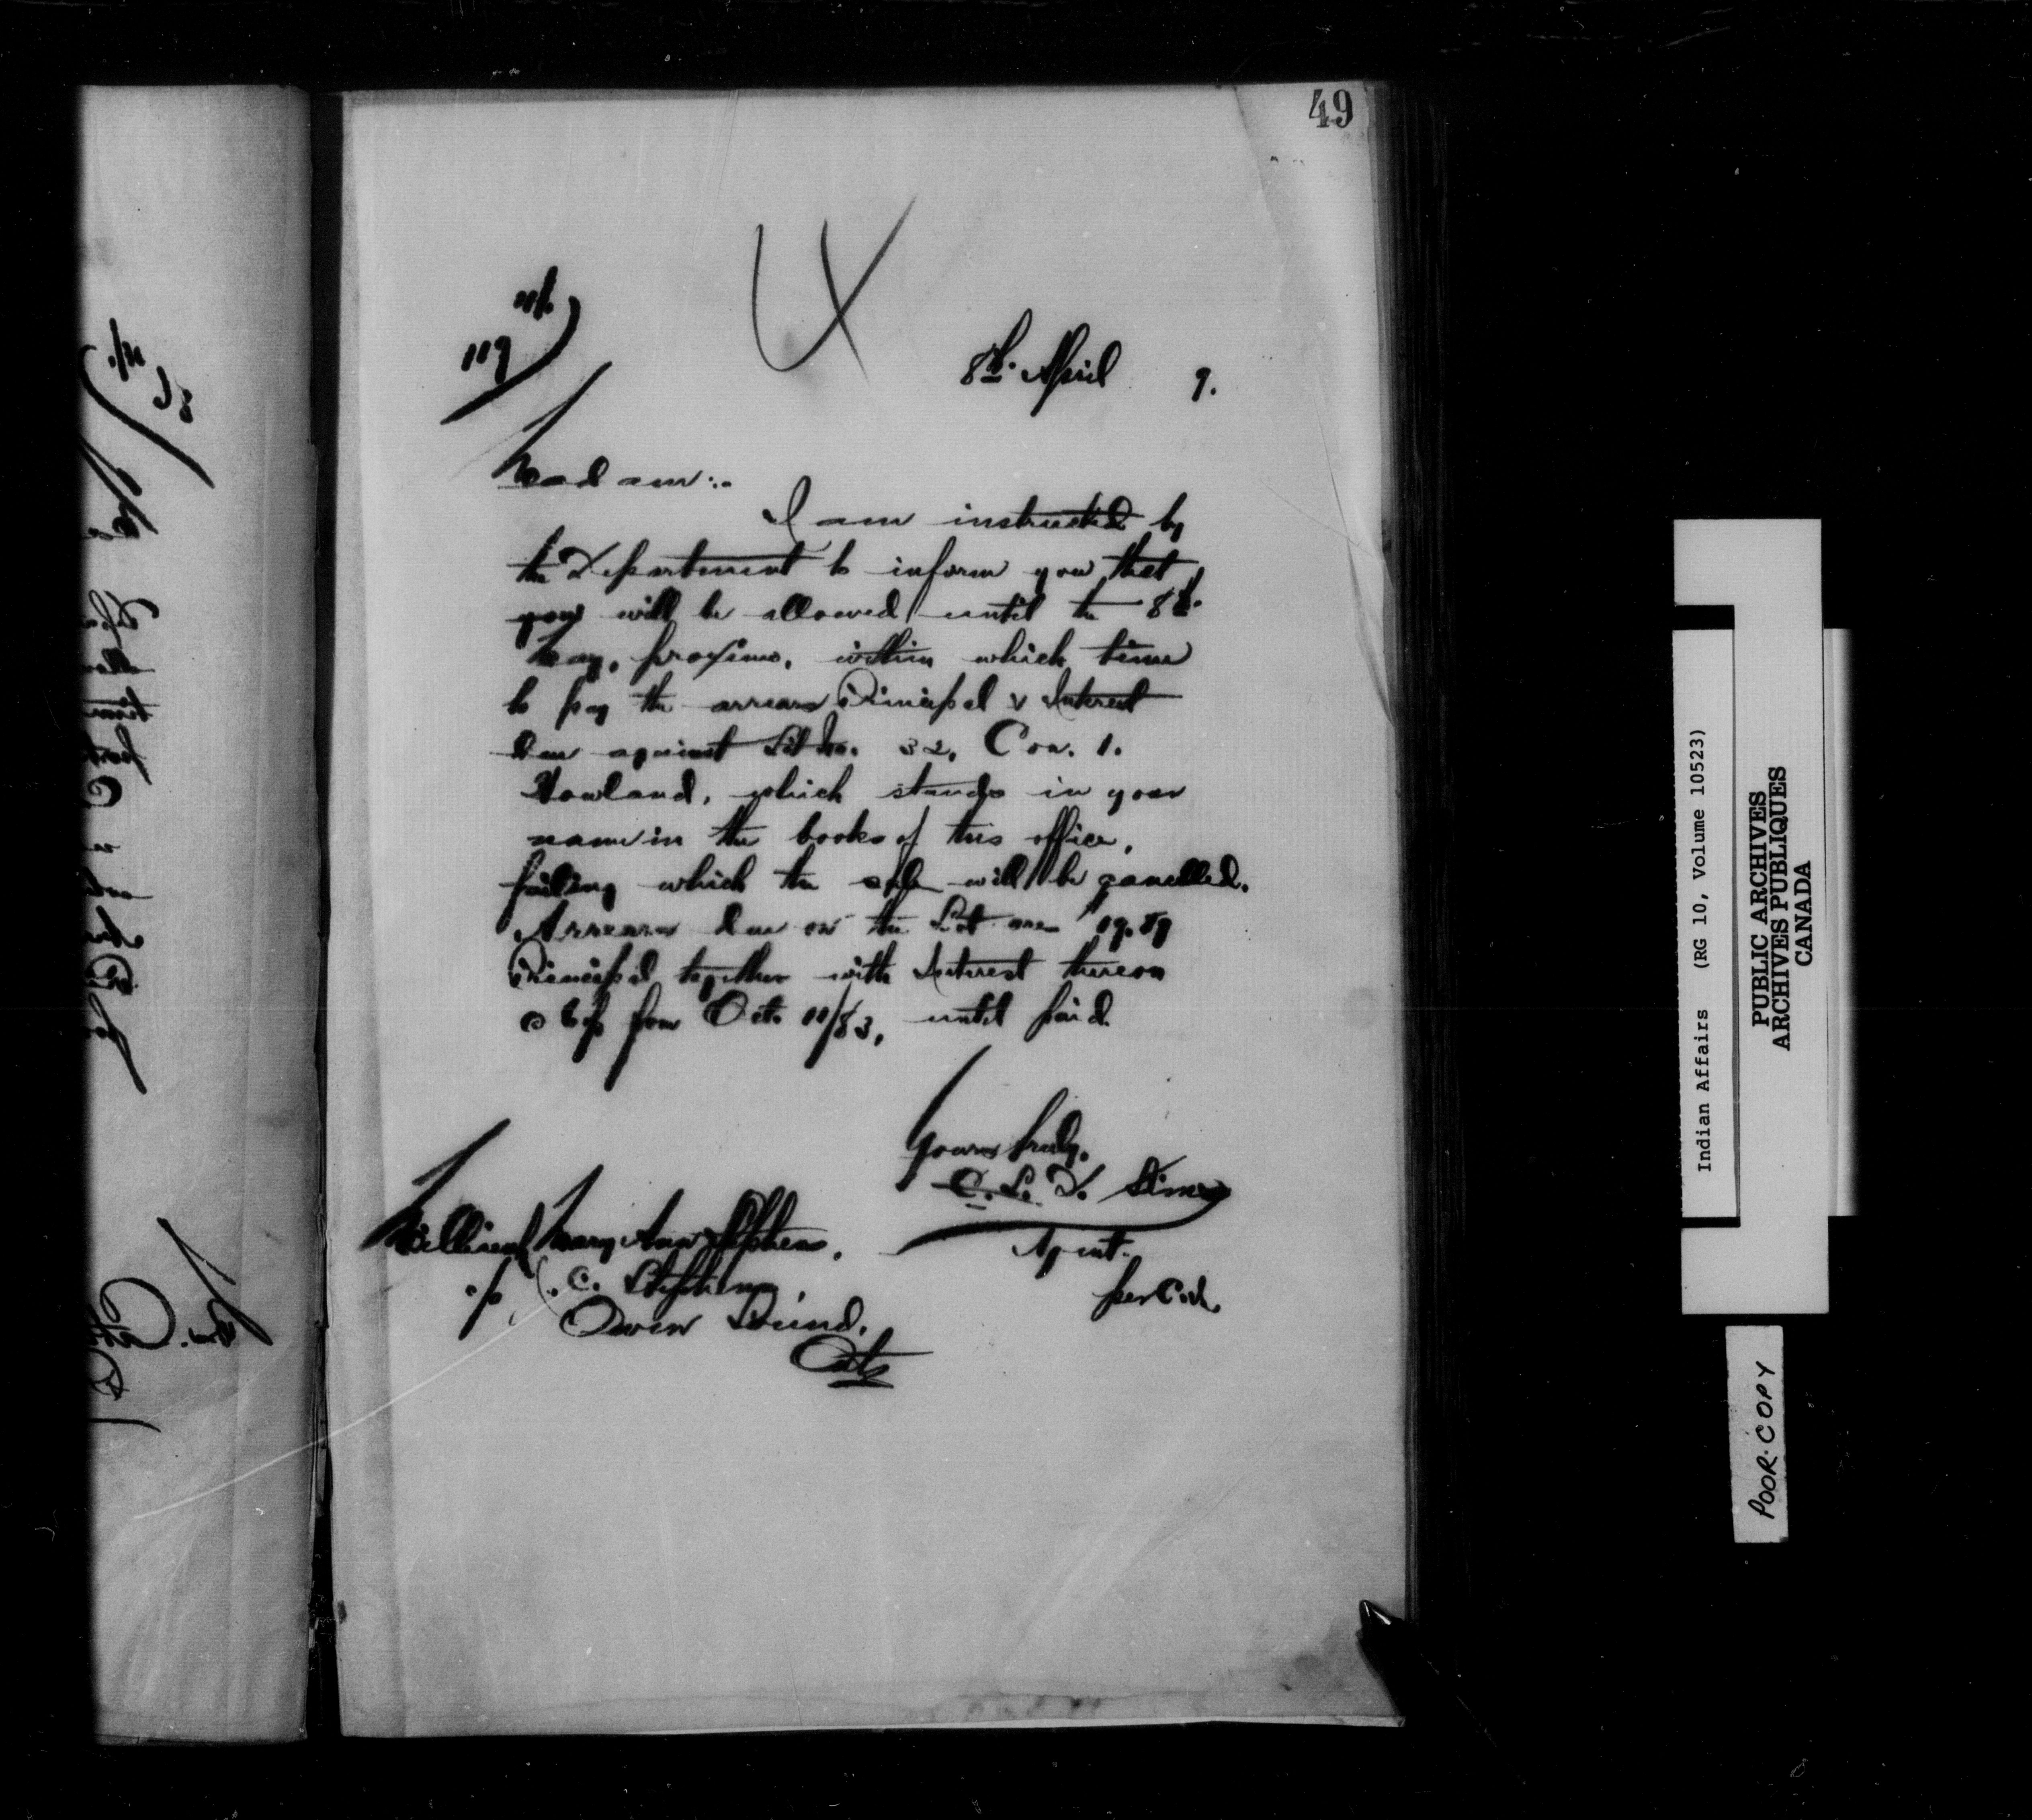 49
119
8th. April 9.
Madam:-
I am instructed by
the Department to inform you that
you will be allowed until the 8th.
May, proximo, within which time
to pay the arrears Principal & Interest
due against Lot No. 32, Con. 1.
Howland, which stands in your
name in the books of this office,
failing which the sale will be cancelled.
Arrears due on the Lot are 19.89
Principal together with Interest thereon
@ 6% from Oct. 11/83, until paid.
Yours truly,
C. L. D. Sims
Agent.
per
Mary Ann Stephens,
C. Stephens,
Owen Sound.
Ont.
Indian Affairs (RG 10, Volume 10523)
PUBLIC ARCHIVES
ARCHIVES PUBLIQUES
CANADA
POOR COPY